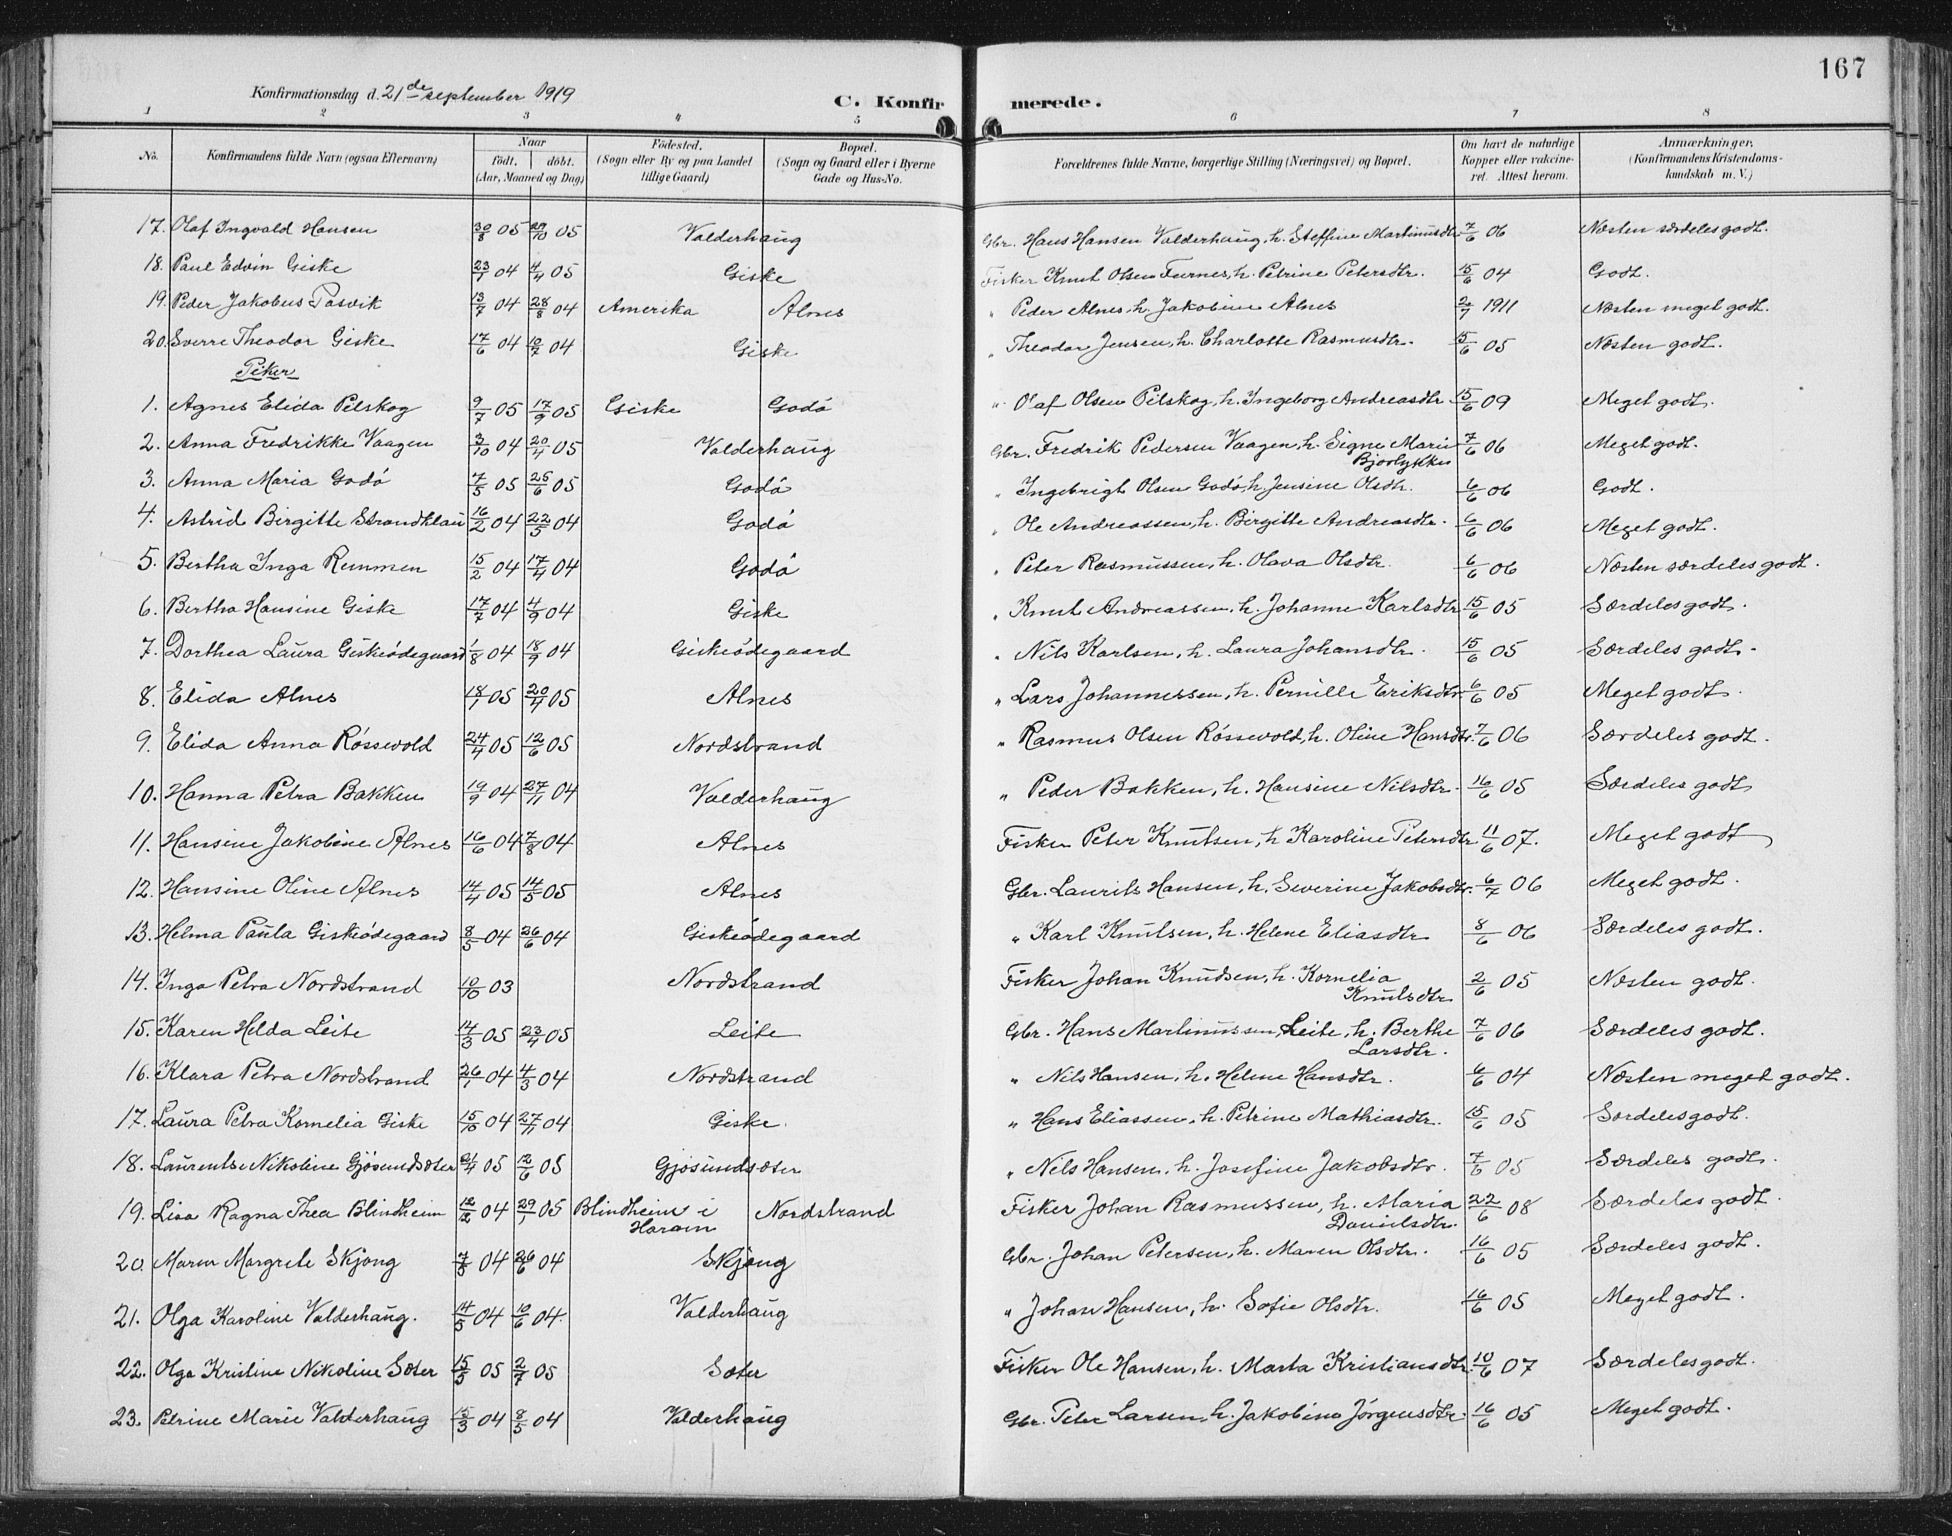 167
Konfirmationsdag d. 21de september 1919
C. Konfirmerede.
1 2 3 4 5 6 7 8
No. Konfirmandens fulde Navn (ogsaa Efternavn) Naar født. døbt. (Aar, Maaned og Dag) Fødested. (Sogn eller By og paa Landet tillige Gaard) Bopæl. (Sogn og Gaard eller i Byerne Gade og Hus-No. Forældrenes fulde Navne, borgerlige Stilling (Næringsvei) og Bopæl. Om havt de naturlige Kopper eller vakcineret. Attest herom. Anmærkninger. (Konfirmandens Kristendomskundskab m. V.)
17. Olaf Ingvald Hansen 30/8 05 29/10 05 Valderhaug Gbr. Hans Hansen Valderhaug, h. Steffine Martinusdtr. 7/6 06 Næsten særdeles godt.
18. Paul Edvin Giske 23/1 04 4/4 05 Giske Fisker Knut Olsen Furnes, h. Petrine Petersdtr. 15/6 04 Godt.
19. Peder Jakobus Tasvik 13/7 04 28/8 04 Amerika Alnes " Peder Alnes, h. Jakobine Alnes 2/7 1911 Næsten meget godt.
20. Sverre Theodor Giske 17/6 04 10/7 04 Giske " Theodor Jensen, h. Charlotte Rasmusdtr. 15/6 05 Næsten godt.
Piker
1. Agnes Elida Pilskog 9/7 05 17/9 05 Giske Godö " Olaf Olsen Pilskog, h. Ingeborg Andreasdtr. 15/6 09 Meget godt.
2. Anna Fredrikke Vaagen 3/10 04 20/4 05 Valderhaug Gbr. Fredrik Pedersen Vaagen, h. Signe Marie Bjorlykke 7/6 06 Meget godt.
3. Anna Maria Godö 7/5 05 25/6 05 Godö " Ingebrigt Olsen Godö, h. Jensine Olsdtr. 6/6 06 Godt.
4. Astrid Birgitte Strandklau 16/2 04 22/5 04 Godö " Ole Andreassen, h. Birgitte Andreasdtr. 6/6 06 Meget godt.
5. Bertha Inga Remmen 15/2 04 17/4 04 Godö " Peter Rasmussen, h. Olava Olsdtr. 6/6 06 Næsten særdeles godt.
6. Bertha Hansine Giske 17/7 04 4/9 04 Giske " Knut Andreassen, h. Johanne Karlsdtr. 15/6 05 Særdeles godt.
7. Dorthea Laura Giskeödegaard 1/8 04 18/9 04 Giskeödegaard " Nils Karlsen, h. Laura Johansdtr. 15/6 05 Særdeles godt.
8. Elida Alnes 18/1 05 20/4 05 Alnes " Lars Johannessen, h. Pernille Eriksdtr. 6/6 05 Meget godt.
9. Elida Anna Rössevold 24/4 05 12/6 05 Nordstrand " Rasmus Olsen Rössevold, h. Oline Hansdtr. 7/6 06 Særdeles godt.
10. Hanna Petra Bakken 19/9 04 27/11 04 Valderhaug " Peder Bakken, h. Hansine Nilsdtr. 16/6 05 Særdeles godt
11. Hansine Jakobine Alnes 16/6 04 7/8 04 Alnes Fisker Peter Knutsen, h. Karoline Petersdtr. 11/6 07. Meget godt
12. Hansine Oline Alnes 14/4 05 14/5 05 Alnes Gbr. Laurits Hansen, h. Severine Jakobsdtr. 6/7 06 Meget godt.
13. Helma Paula Giskeödegaard 8/5 04 26/6 04 Giskeödegaard " Karl Knutsen, h. Helene Eliasdtr 8/6 06 Særdeles godt.
14. Inga Petra Nordstrand 10/10 03 Nordstrand Fisker Johan Knudsen, h. Kornelia Knutsdtr. 2/6 05 Næsten godt.
15. Karen Helda Leite 14/3 05 23/4 05 Leite Gbr. Hans Martinussen Leite, h. Berthe Larsdtr. 7/6 06 Særdeles godt.
16. Klara Petra Nordstrand 26/1 04 4/3 04 Nordstrand " Nils Hansen, h. Helene Hansdtr. 6/6 04 Næsten meget godt.
17. Laura Petra Kornelia Giske 15/10 04 27/11 04 Giske. " Hans Eliassen, h. Petrine Mathiasdtr. 15/6 05 Særdeles godt.
18. Laurentse Nikoline Gjösundsæter 21/4 05 12/6 05 Gjösundsæter " Nils Hansen, h. Josefine Jakobsdtr. 7/6 05 Særdeles godt.
19. Lisa Ragna Thea Blindheim 12/2 04 29/1 05 Blindheim i Haram Nordstrand Fisker Johan Rasmussen, h. Maria Danielsdtr. 22/6 08 Særdeles godt.
20. Maren Margrete Skjong 7/5 04 26/6 04 Skjong Gbr. Johan Petersen, h. Maren Olsdtr. 16/6 05 Særdeles godt.
21. Olga Karoline Valderhaug. 14/5 04 10/6 04. Valderhaug " Johan Hansen, h. Sofie Olsdtr. 16/6 05 Meget godt.
22. Olga Kristine Nikoline Sæter 15/5 05 2/7 05 Sæter Fisker Ole Hansen, h. Marta Kristiansdtr. 10/6 07 Særdeles godt.
23. Petrine Marie Valderhaug 15/3 04 8/5 04 Valderhaug Gbr. Peter Larsen, h. Jakobine Jörgensdtr. 16/6 05 Meget godt.